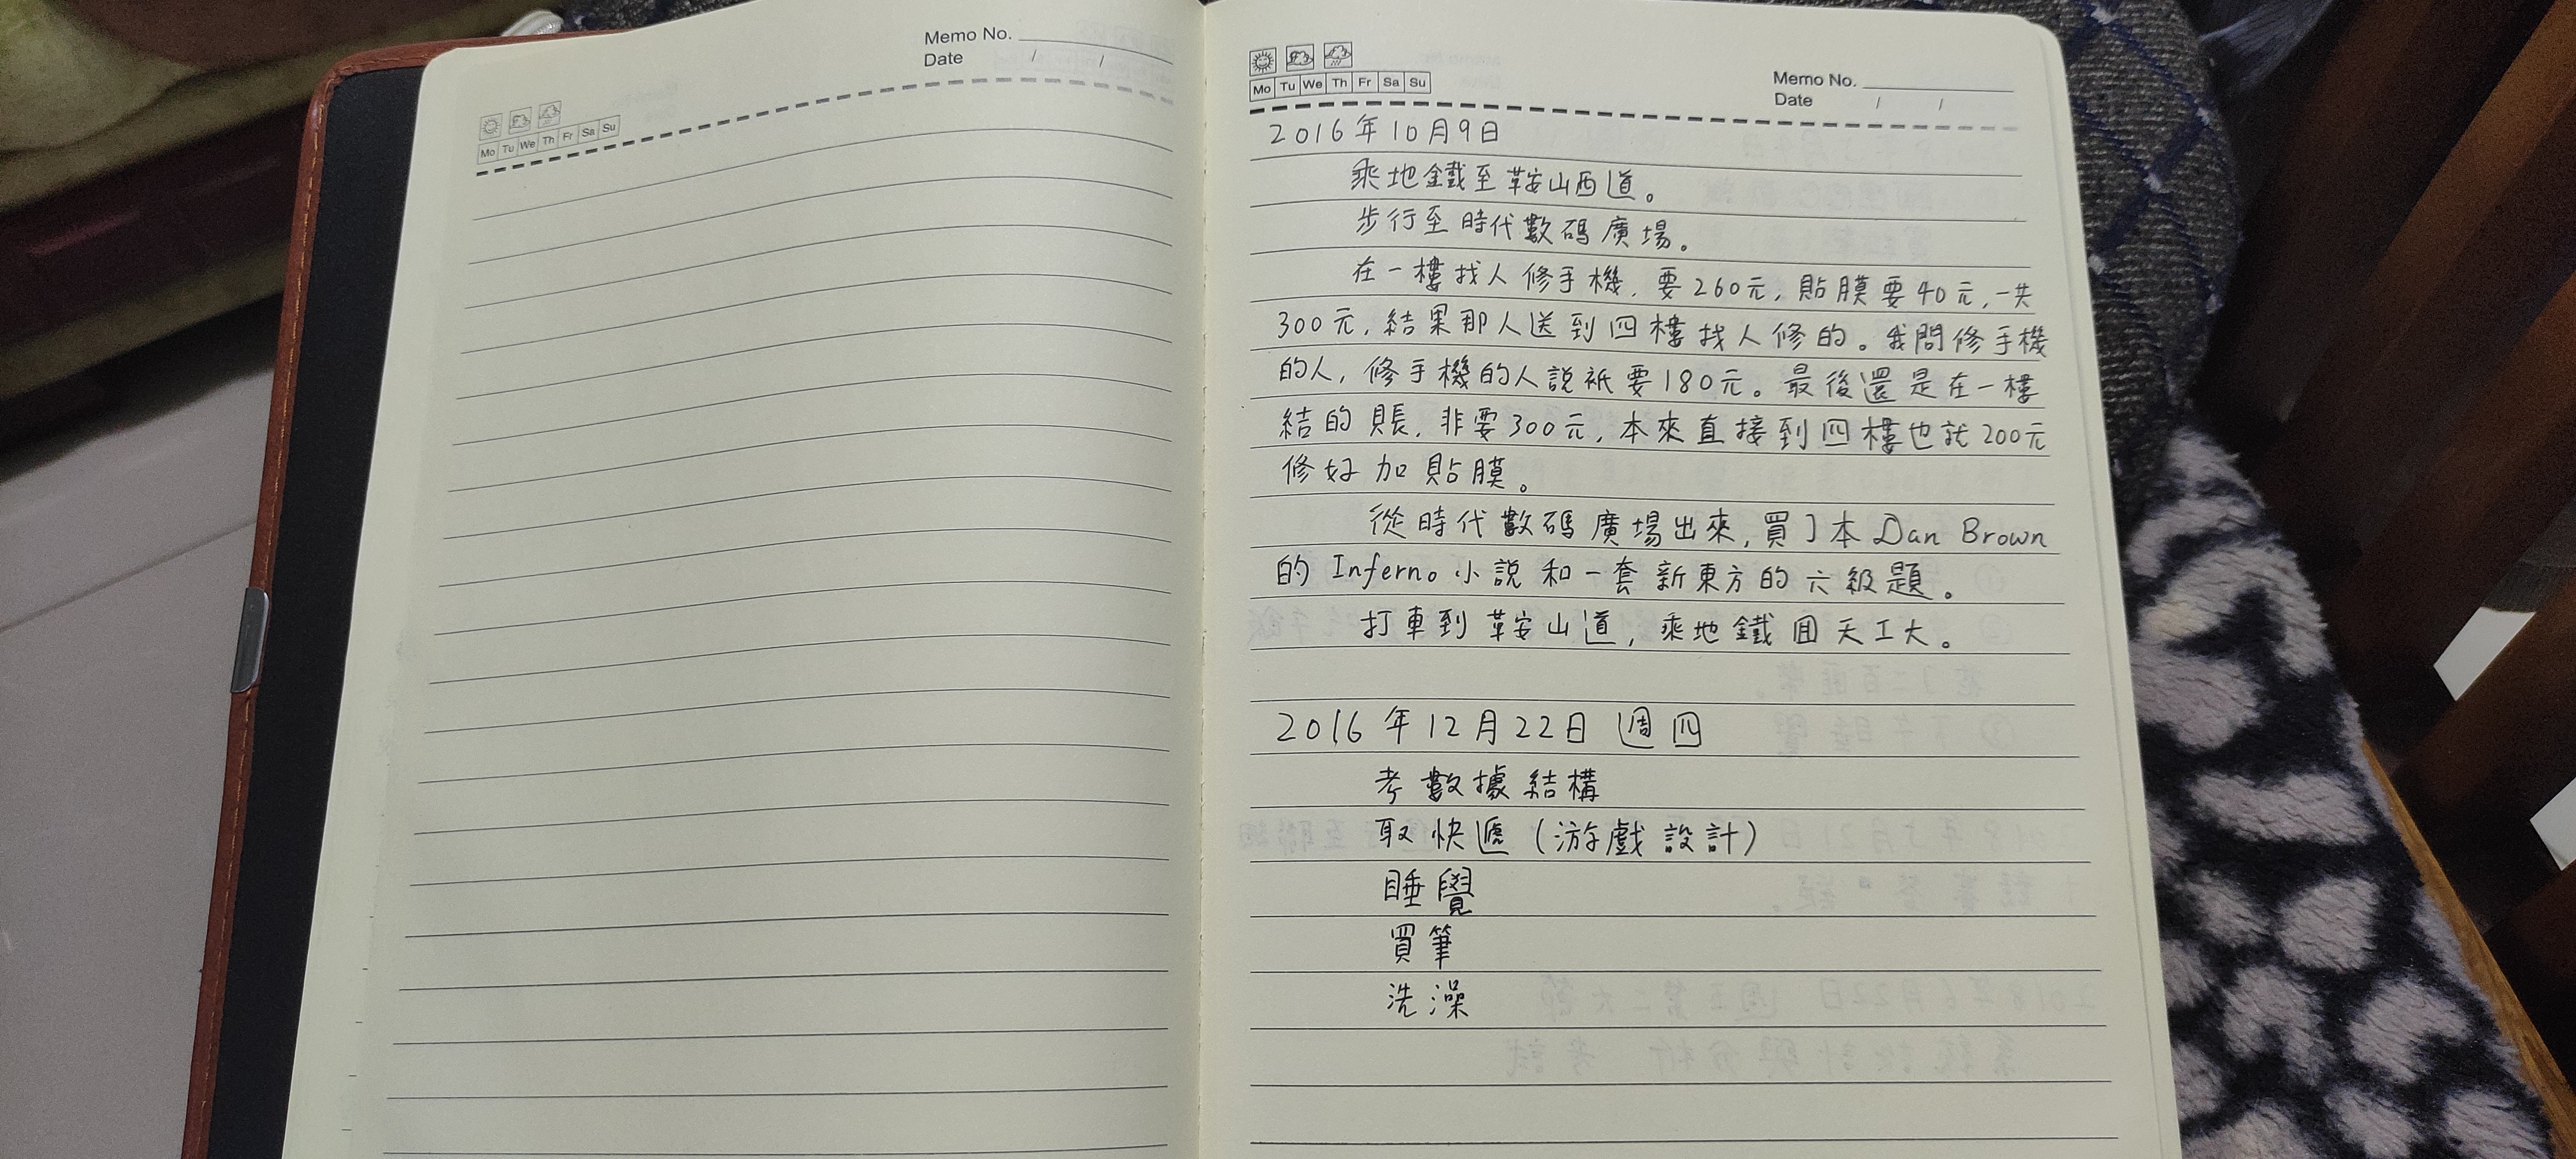 Memo No.
Date / /
Mo Tu We Th Fr Sa Su
Memo No.
Date / /
Mo Tu We Th Fr Sa Su
2016年10月9日
乘地鐵至鞍山西道。
步行至時代數碼廣場。
在一樓找人修手機,要260元,貼膜要40元,一共
300元,結果那人送到四樓找人修的。我問修手機
的人,修手機的人說衹要180元。最後還是在一樓
結的賬,非要300元,本來直接到四樓也就200元
修好加貼膜。
從時代數碼廣場出來,買了本Dan Brown
的Inferno小說和一套新東方的六級題。
打車到鞍山道,乘地鐵囬天工大。
2016年12月22日 週四
考數據結構
取快遞(游戲設計)
睡覺
買筆
洗澡